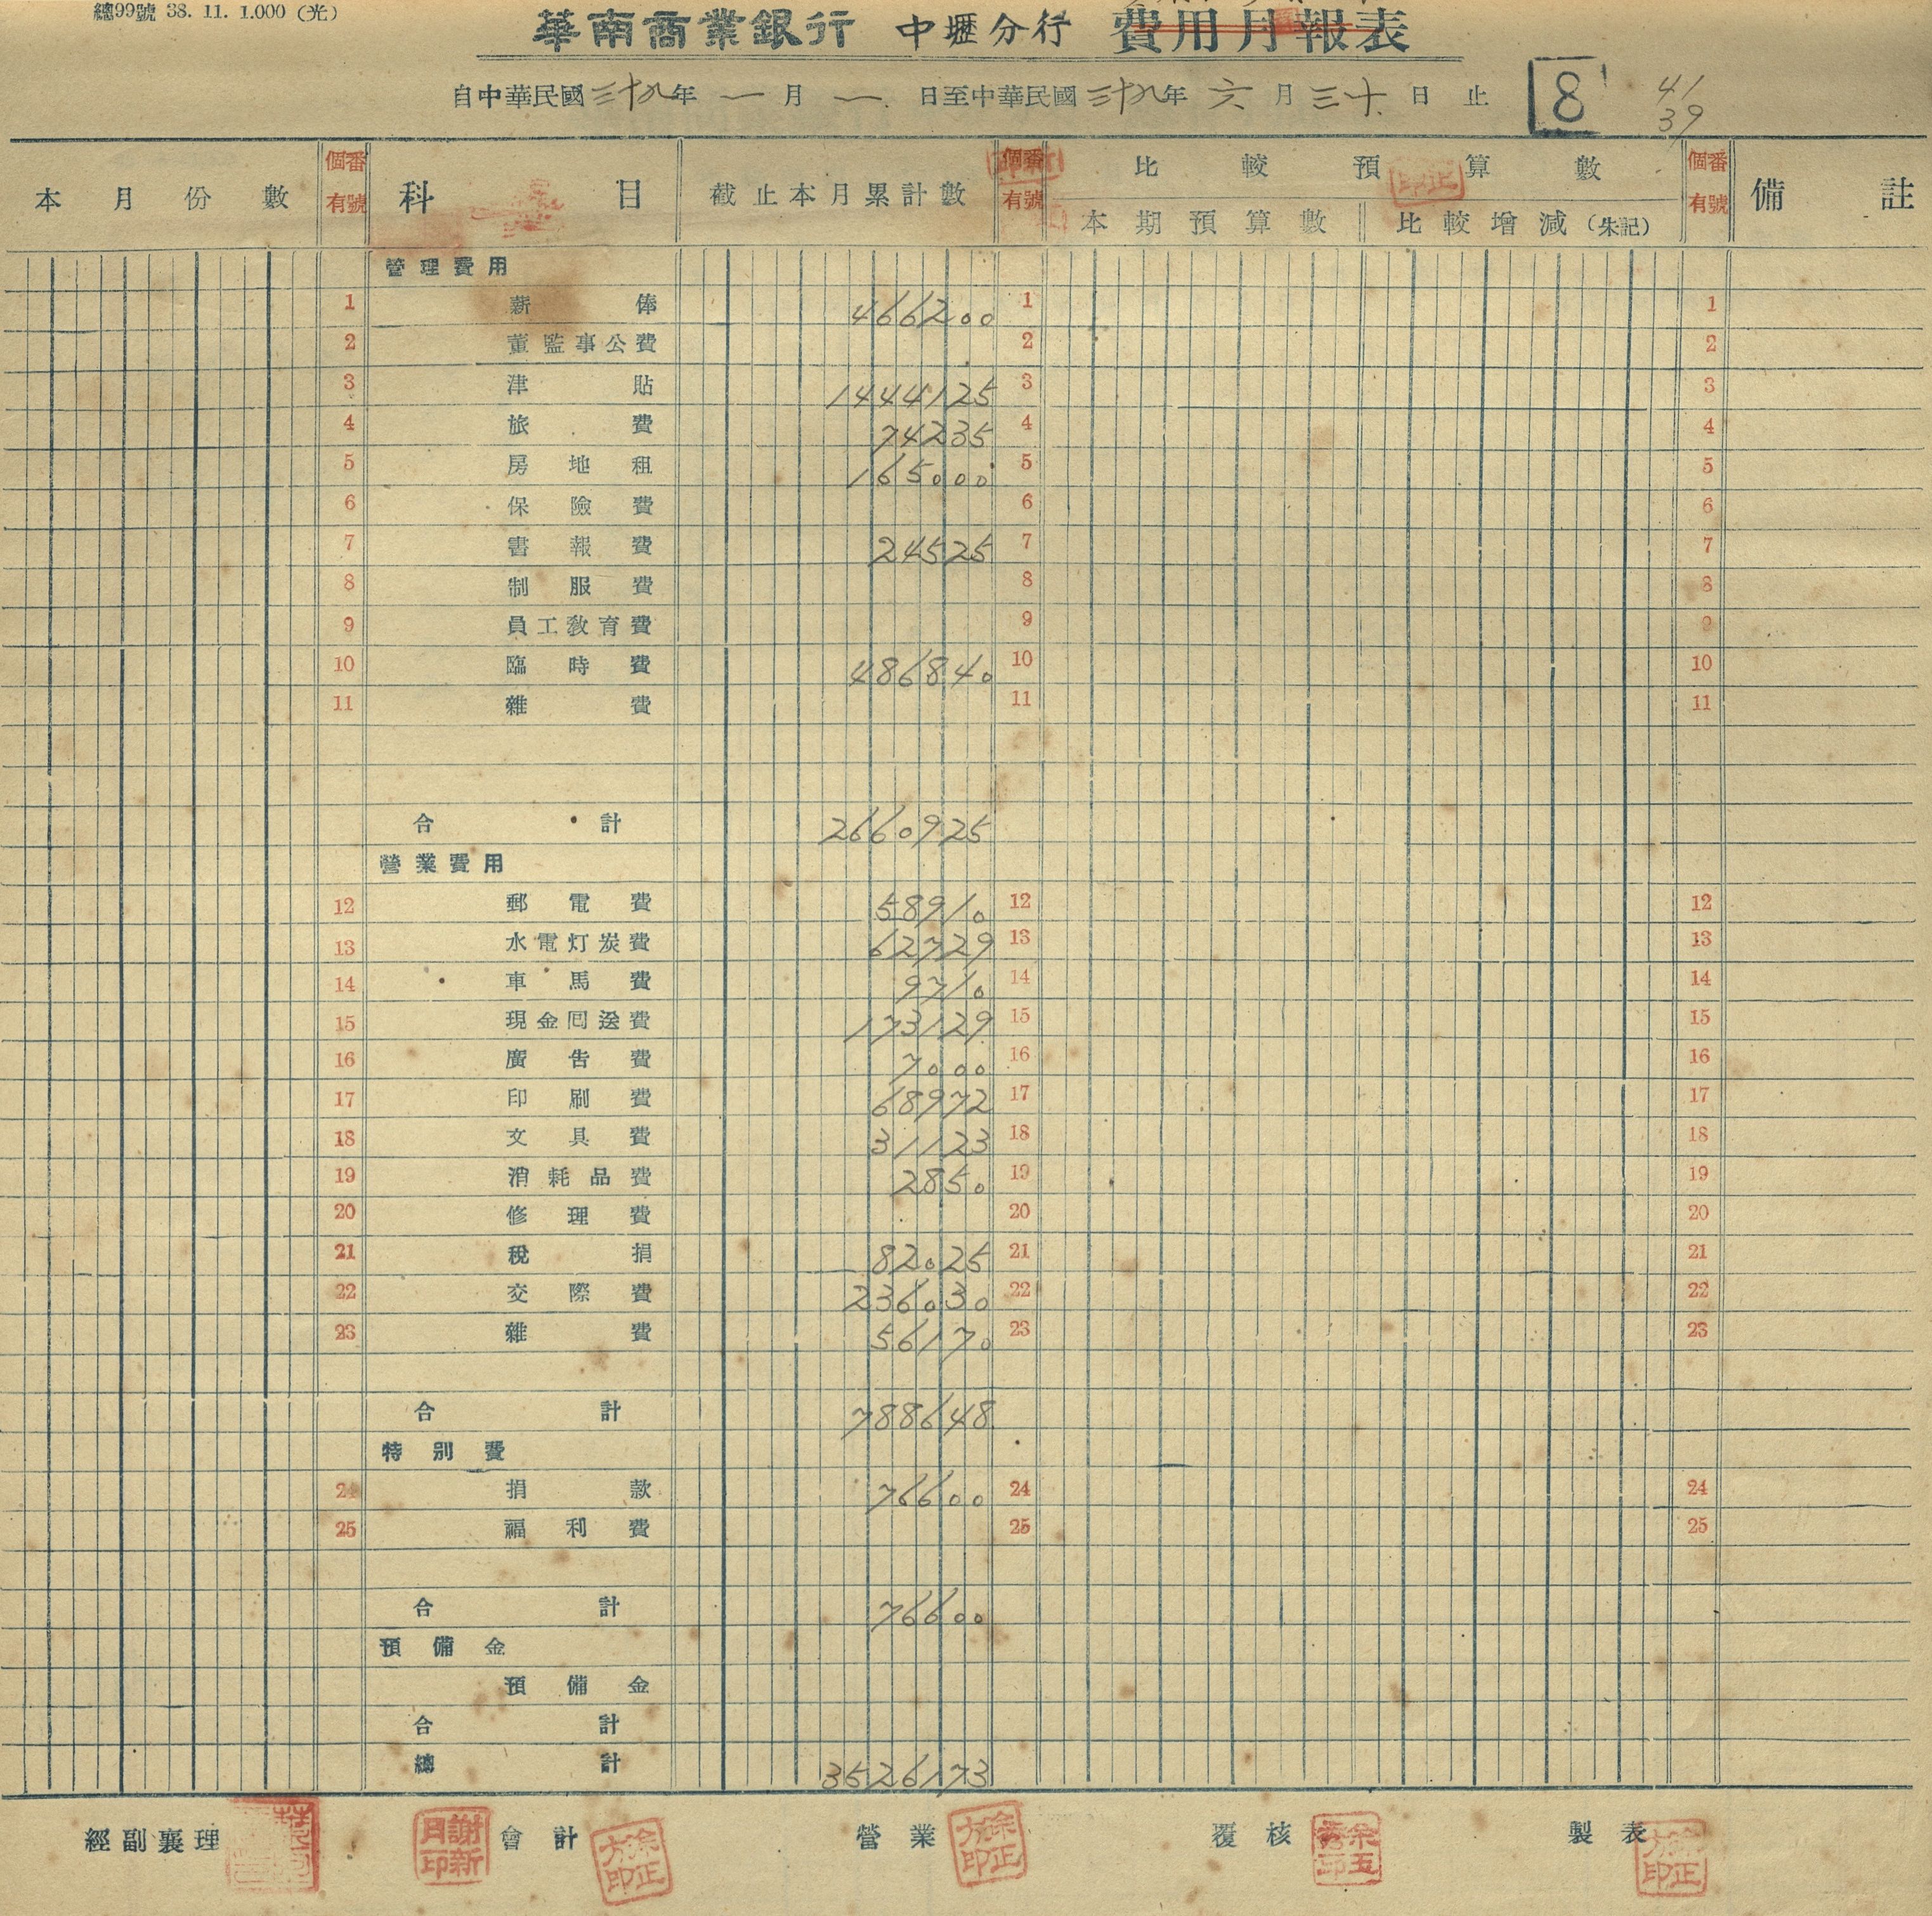 總99號 38. 11. 1.000 (光)
華南商業銀行 中壢分行 費用月報表
自中華民國三十九年一月一日至中華民國三十九年六月三十日止 8 41
39
本月份數 個有 番號 科目 截止本月累計數 個有 番號 比較預算數 個有 番號 備註
本期預算數 比較增減(朱記)
管理費用
1 薪俸 466200 1 1
2 董監事公費 2 2
3 津貼 1444125 3 3
4 旅費 74235 4 4
5 房地租 165000 5 5
6 保險費 6 6
7 書報費 24525 7 7
8 制服費 8 8
9 員工敎育費 9 9
10 臨時費 486840 10 10
11 雜費 11 11
合計 2660925
營業費用
12 郵電費 58910 12 12
13 水電灯炭費 62729 13 13
14 車馬費 9710 14 14
15 現金囘送費 173129 15 15
16 廣告費 7000 16 16
17 印刷費 68972 17 17
18 文具費 31123 18 18
19 消耗品費 2850 19 19
20 修理費 20 20
21 稅捐 82025 21 21
22 交際費 236030 22 22
23 雜費 56170 23 23
合計 788648
特別費
24 捐款 76600 24 24
25 福利費 25 25
合計 76600
預備金
預備金
合計
總計 3526173
經副襄理 謝新月印 會計 徐正方印 營業 徐正方印 覆核 製表 徐正方印